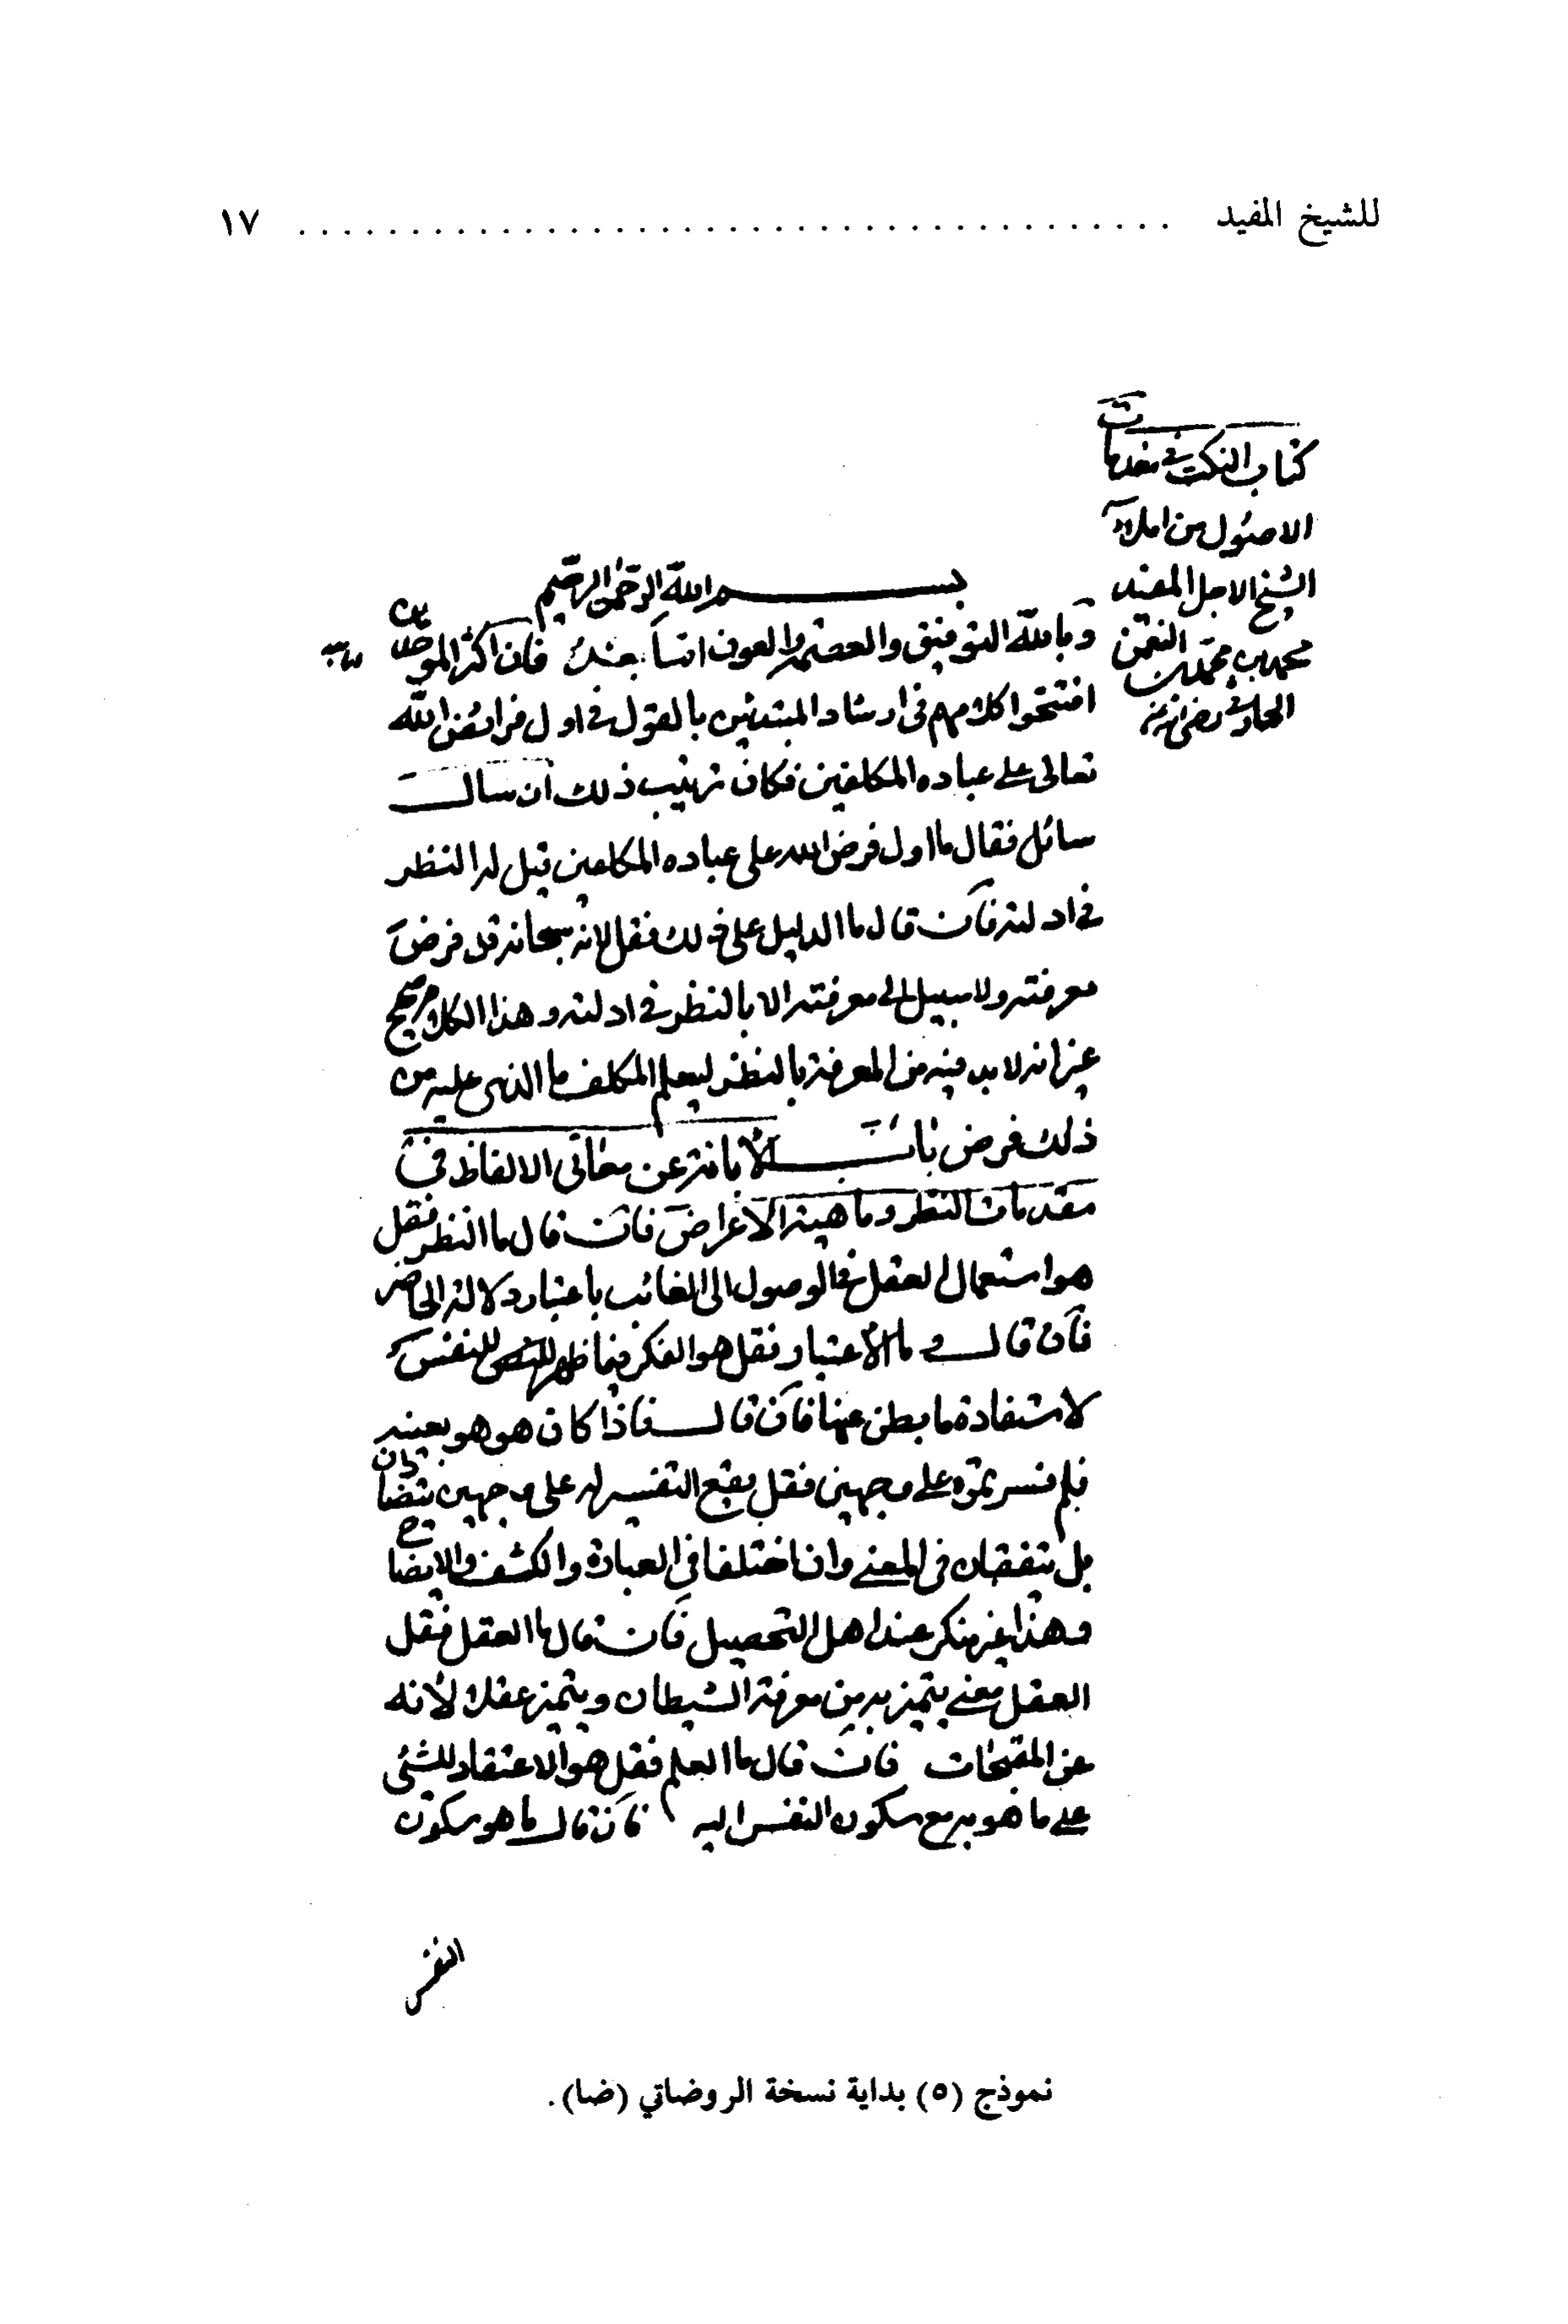 للشيخ المفيد ........................................ ١٧
كتاب النكت في مقدمات
الاصول من املاء
الشيخ الاجل المفيد
محمد بن محمد بن النعمن
الحارثي رضي الله عنه
بسم الله الرحمن الرحيم
وبالله التوفيق والعصمة والعون فان اكثر الموحدين
افتتحوا كلامهم في ارشاد المبتدئين بالقول في اول فرائض الله
تعالى على عباده المكلفين فكان ترتيب ذلك ان سال
سائل فقال ما اول فرض الله على عباده المكلفين قيل له النظر
في ادلته فان قال ما الدليل على ذلك فقل لانه سبحانه قد فرض
معرفته ولا سبيل الى معرفته الا بالنظر في ادلته وهذا الكلام صحيح
غير انه لا بد فيه من المعرفة بالنظر ليعلم المكلف ما الذى عليه من
ذلك فرض باب الأبانة عن معاني الالفاظ في
مقدمات النظر وماهية الاغراض فان قال ما النظر فقل
هو استعمال العقل في الوصول الى الغائب باعتبار دلالة الحاضر
فان قال وما الاعتبار فقل هو الفكر فيما ظهر للنفس
لاستفادة ما بطن عنها فان قال فاذا كان هو هو بعينه
فلم فسرتموه على وجهين فقل يقع التفسير له على وجهين يتضادان
بل يتفقان في المعنى وان اختلفا في العبارة والكشف والايضاح
وهذا غير منكر عند اهل التحصيل فان قال ما العقل فقل
العقل معنى يتميز به من معرفة الشيطان ويتميز عقلا لأنه
عن المقبحات فان قال ما العلم فقل هو الاعتقاد للشئ
على ما هو به مع سكون النفس اليه فان قال ما هو سكون
النفس
نموذج (٥) بداية نسخة الروضاتي (ضا).